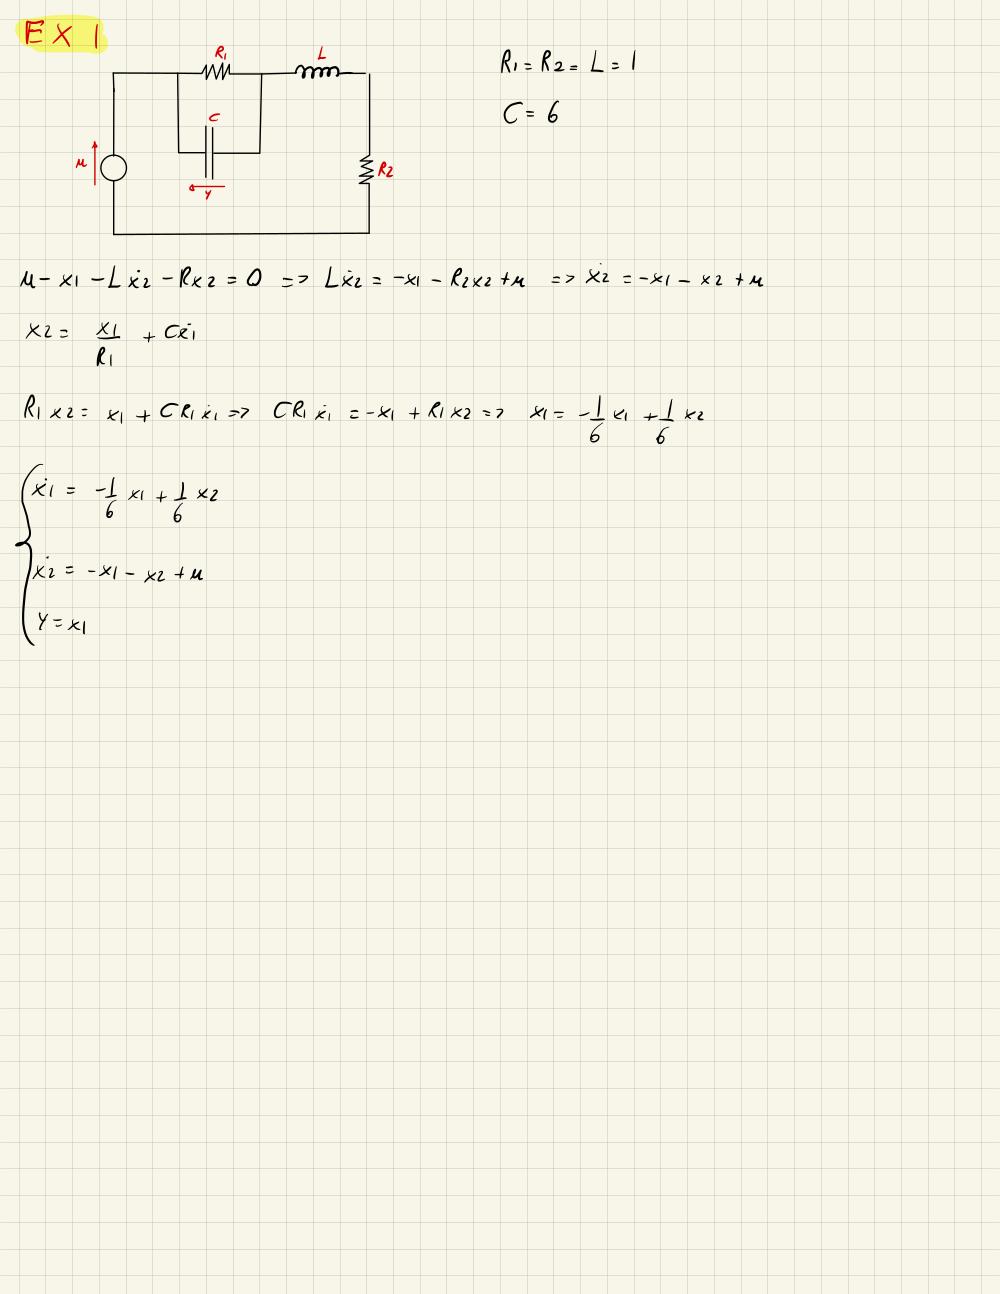 EX 1
R1
L
C
u
y
R2
R1 = R2 = L = 1
C = 6
u - x1 - Lẋ2 - Rx2 = 0 => Lẋ2 = -x1 - R2x2 + u => ẋ2 = -x1 - x2 + u
x2 = x1/R1 + Cẋ1
R1x2 = x1 + CR1ẋ1 => CR1ẋ1 = -x1 + R1x2 => x1 = -1/6 x1 + 1/6 x2
ẋ1 = -1/6 x1 + 1/6 x2
ẋ2 = -x1 - x2 + u
y = x1